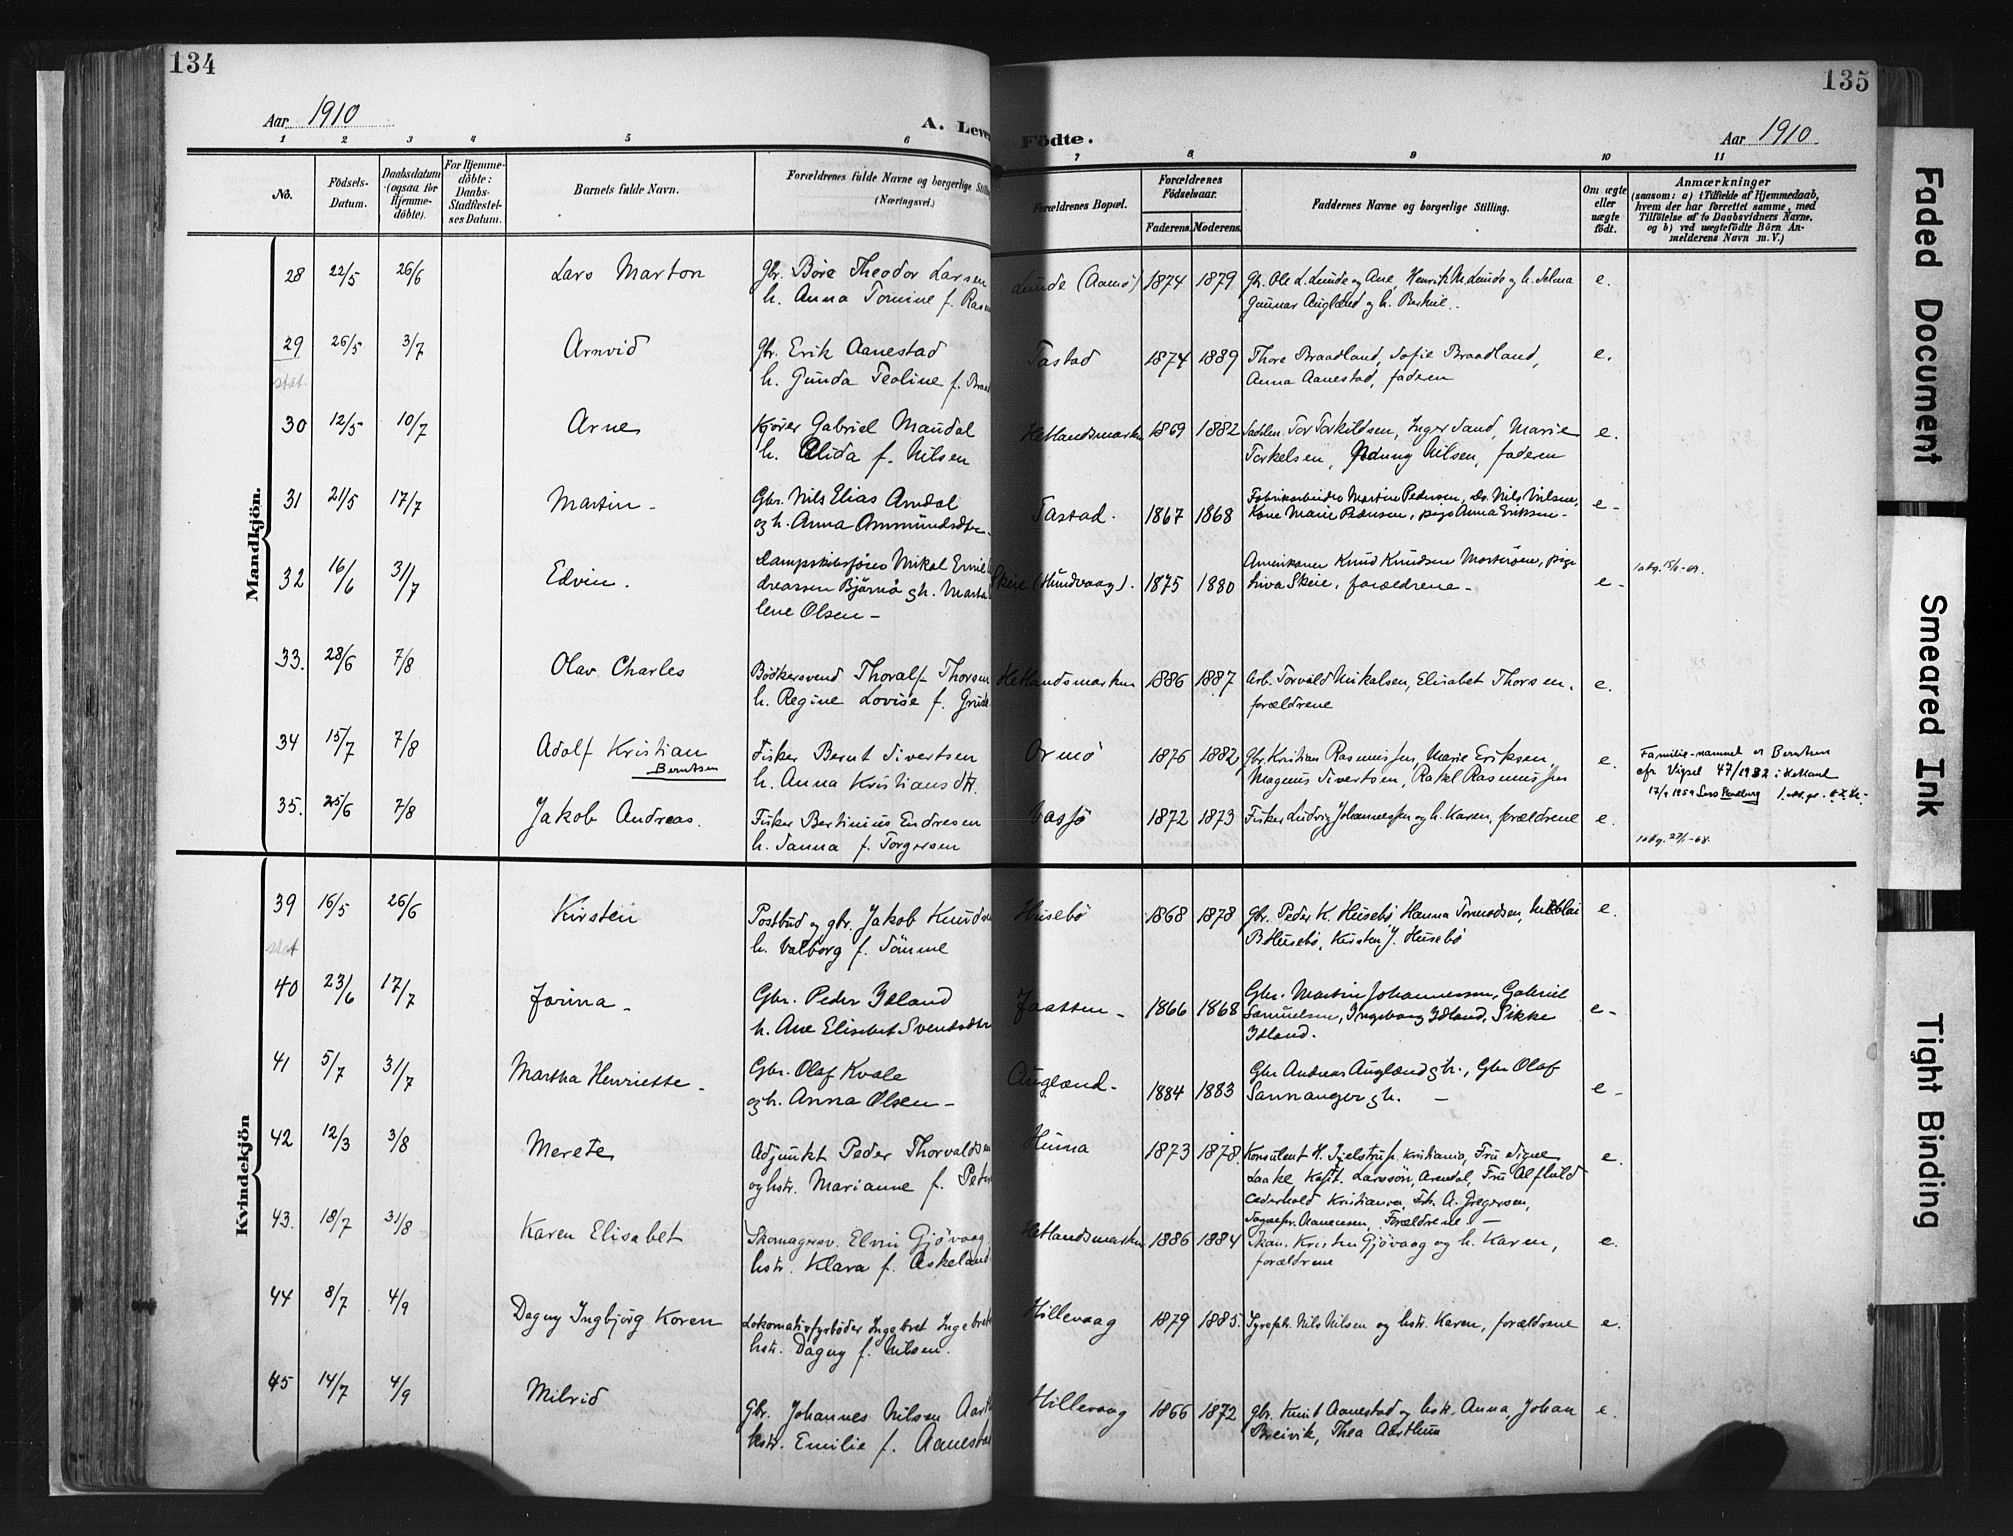 134
Aar 1910
A. Leve
1 2 3 4 5 6
No.
Födsels-Datum.
Daabsdatum (ogsaa for Hjemme-döbte).
For Hjemme-döbte: Daabs-Stadfæstel-ses Datum.
Barnets fulde Navn.
Forældrenes fulde Navne og borgerlige Stilling
(Næringsvei.)
Mandkjön.
28 22/5 26/6 Lars Marton Gbr. Böre Theodor Larsen
h. Anna Tomine f. Ras
29 26/5 3/7 Arnvid Gbr. Erik Aanestad
stat. h. Gunda Teoline f. Braa
30 12/5 10/7 Arne Kjörer Gabriel Maudal
h. Alida f. Nilsen
31 21/5 17/7 Martin - Gbr. Nils Elias Arndal
og h. Anna Ommundsdtr -
32 16/6 31/7 Edvin. Dampskibsförer Mikal Emil
dreassen Björnö og h. Marta
lene Olsen -
33. 28/6 7/8 Olav Charles Bödkersvend Thoralf Thorsen
h. Regine Lovise f. Grude
34 15/7 7/8 Adolf Kristian Fisker Bernt Sivertsen
Berntsen h. Anna Kristiansdtr.
35. 25/6 7/8 Jakob Andreas. Fisker Bertinius Endresen
h. Janna f. Torgersen
Kvindekjön
39 16/5 26/6 Kirsten Postbud og gbr. Jakob Knuds
stat h. Valborg f. Sömme
40 23/6 17/7 Jorina - Gbr. Peder Idland
h. Ane Elisabet Svendsdtr
41 5/7 31/7 Martha Henriette - Gbr. Olaf Kvale
og h. Anna Olsen -
42 12/3 3/8 Merete Adjunkt Peder Thorvaldsen
og hstr. Marianne f. Peter
43. 18/7 31/8 Karen Elisabet Skomagersv. Elvin Gjövaag
hstr. Klara f. Askeland
44 8/7 4/9 Dagny Ingbjörg Koren Lokomotivfyrböder Ingebret Ingebret
hstr. Dagny f. Nilsen.
45 14/7 4/9 Milrid Gbr. Johannes Nilsen Aart
hstr. Emilie f. Aanestad
135
Födte.
Aar 1910
7 8 9 10 11
Forældrenes Bopæl.
Forældrenes Födselsaar.
Faderens. Moderens.
Faddernes Navne og borgerlige Stilling.
Om ægte eller uægte födt.
Anmærkninger
(saasom: a) i Tilfælde af Hjemmedaab,
hvem der har forrettet samme, med
Tilföielse af to Daabsvidners Navne.
og b) ved uægtefödte Börn An-
melderens Navn m. V.)
Lunde (Aamö) 1874 1879 Gbr. Ole L. Lunde og Ane, Henrik M. Lunde og h. Selma e.
Gunnar Augland og h.
Tastad 1874 1889 Thore Braadland, Sofie Braadland, e.
Anna Aanestad, faderen
Hetlandsmarken 1869 1882 Sadelm. Tor Torkildsen, Inger Sand, Marie e.
Torkelsen, Nilsen, faderen
Tastad. 1867 1868 Fabrikarbeider Martin Pedersen, Do. Nils Nilsen, e -
Kone Marie Pedersen, pige Anna Eriksen -
Skeie (Hundvaag). 1875 1880 Amerikaner Knud Knudsen Mosteröen, pige e -
Skeie, forældrene -
Hetlandsmarken 1886 1887 Arb. Torvald Mikalsen, Elisabet Thorsen, e.
forældrene
Ormö 1876 1882 Gbr. Kristian Rasmussen, Marie Eriksen, e. Familie-navnet er Berntsen
Magnus Sivertsen, Rakel Rasmussen cfr Vigsel 47/1932 i Hetland
Vassö 1872 1873 Fisker Ludvig Johannessen og h. Karen, forældrene e.
Husebö 1868 1878 Gbr. Peder K. Husebö, Hanna Tormodsen, Nikolai e.
B Husebö, Kirsten J. Husebö
Jaatten - 1866 1868 Gbr. Martin Johannessen, Gabriel e -
Samuelsen, Ingeborg Idland, Sikke
Idland.
Augland - 1884 1883 Gbr Andreas Augland og h., Gbr Olaf e -
Sannanger og h. -
Hinna 1873 1878. Konsulent H. Tjelstrup, Kristiania, Fru Signe e.
Laake Kapt. Larssön, Arendal, Fru Alfhild
Cederhold Kristiania, Frk. A. Gregersen,
Aanensen, Forældrene -
Hetlandsmarken 1886 1884 Skom. Kristen Gjövaag og h. Karen, e.
forældrene
Hillevaag 1879 1885. Nils Nilsen og hstr. Karen, forældrene e.
Hillevaag 1866 1872 Gbr. Knut Aanestad og hstr. Anna, Johan e.
Breivik, Thea Aarthun
Faded Document
Smeared Ink
Tight Binding